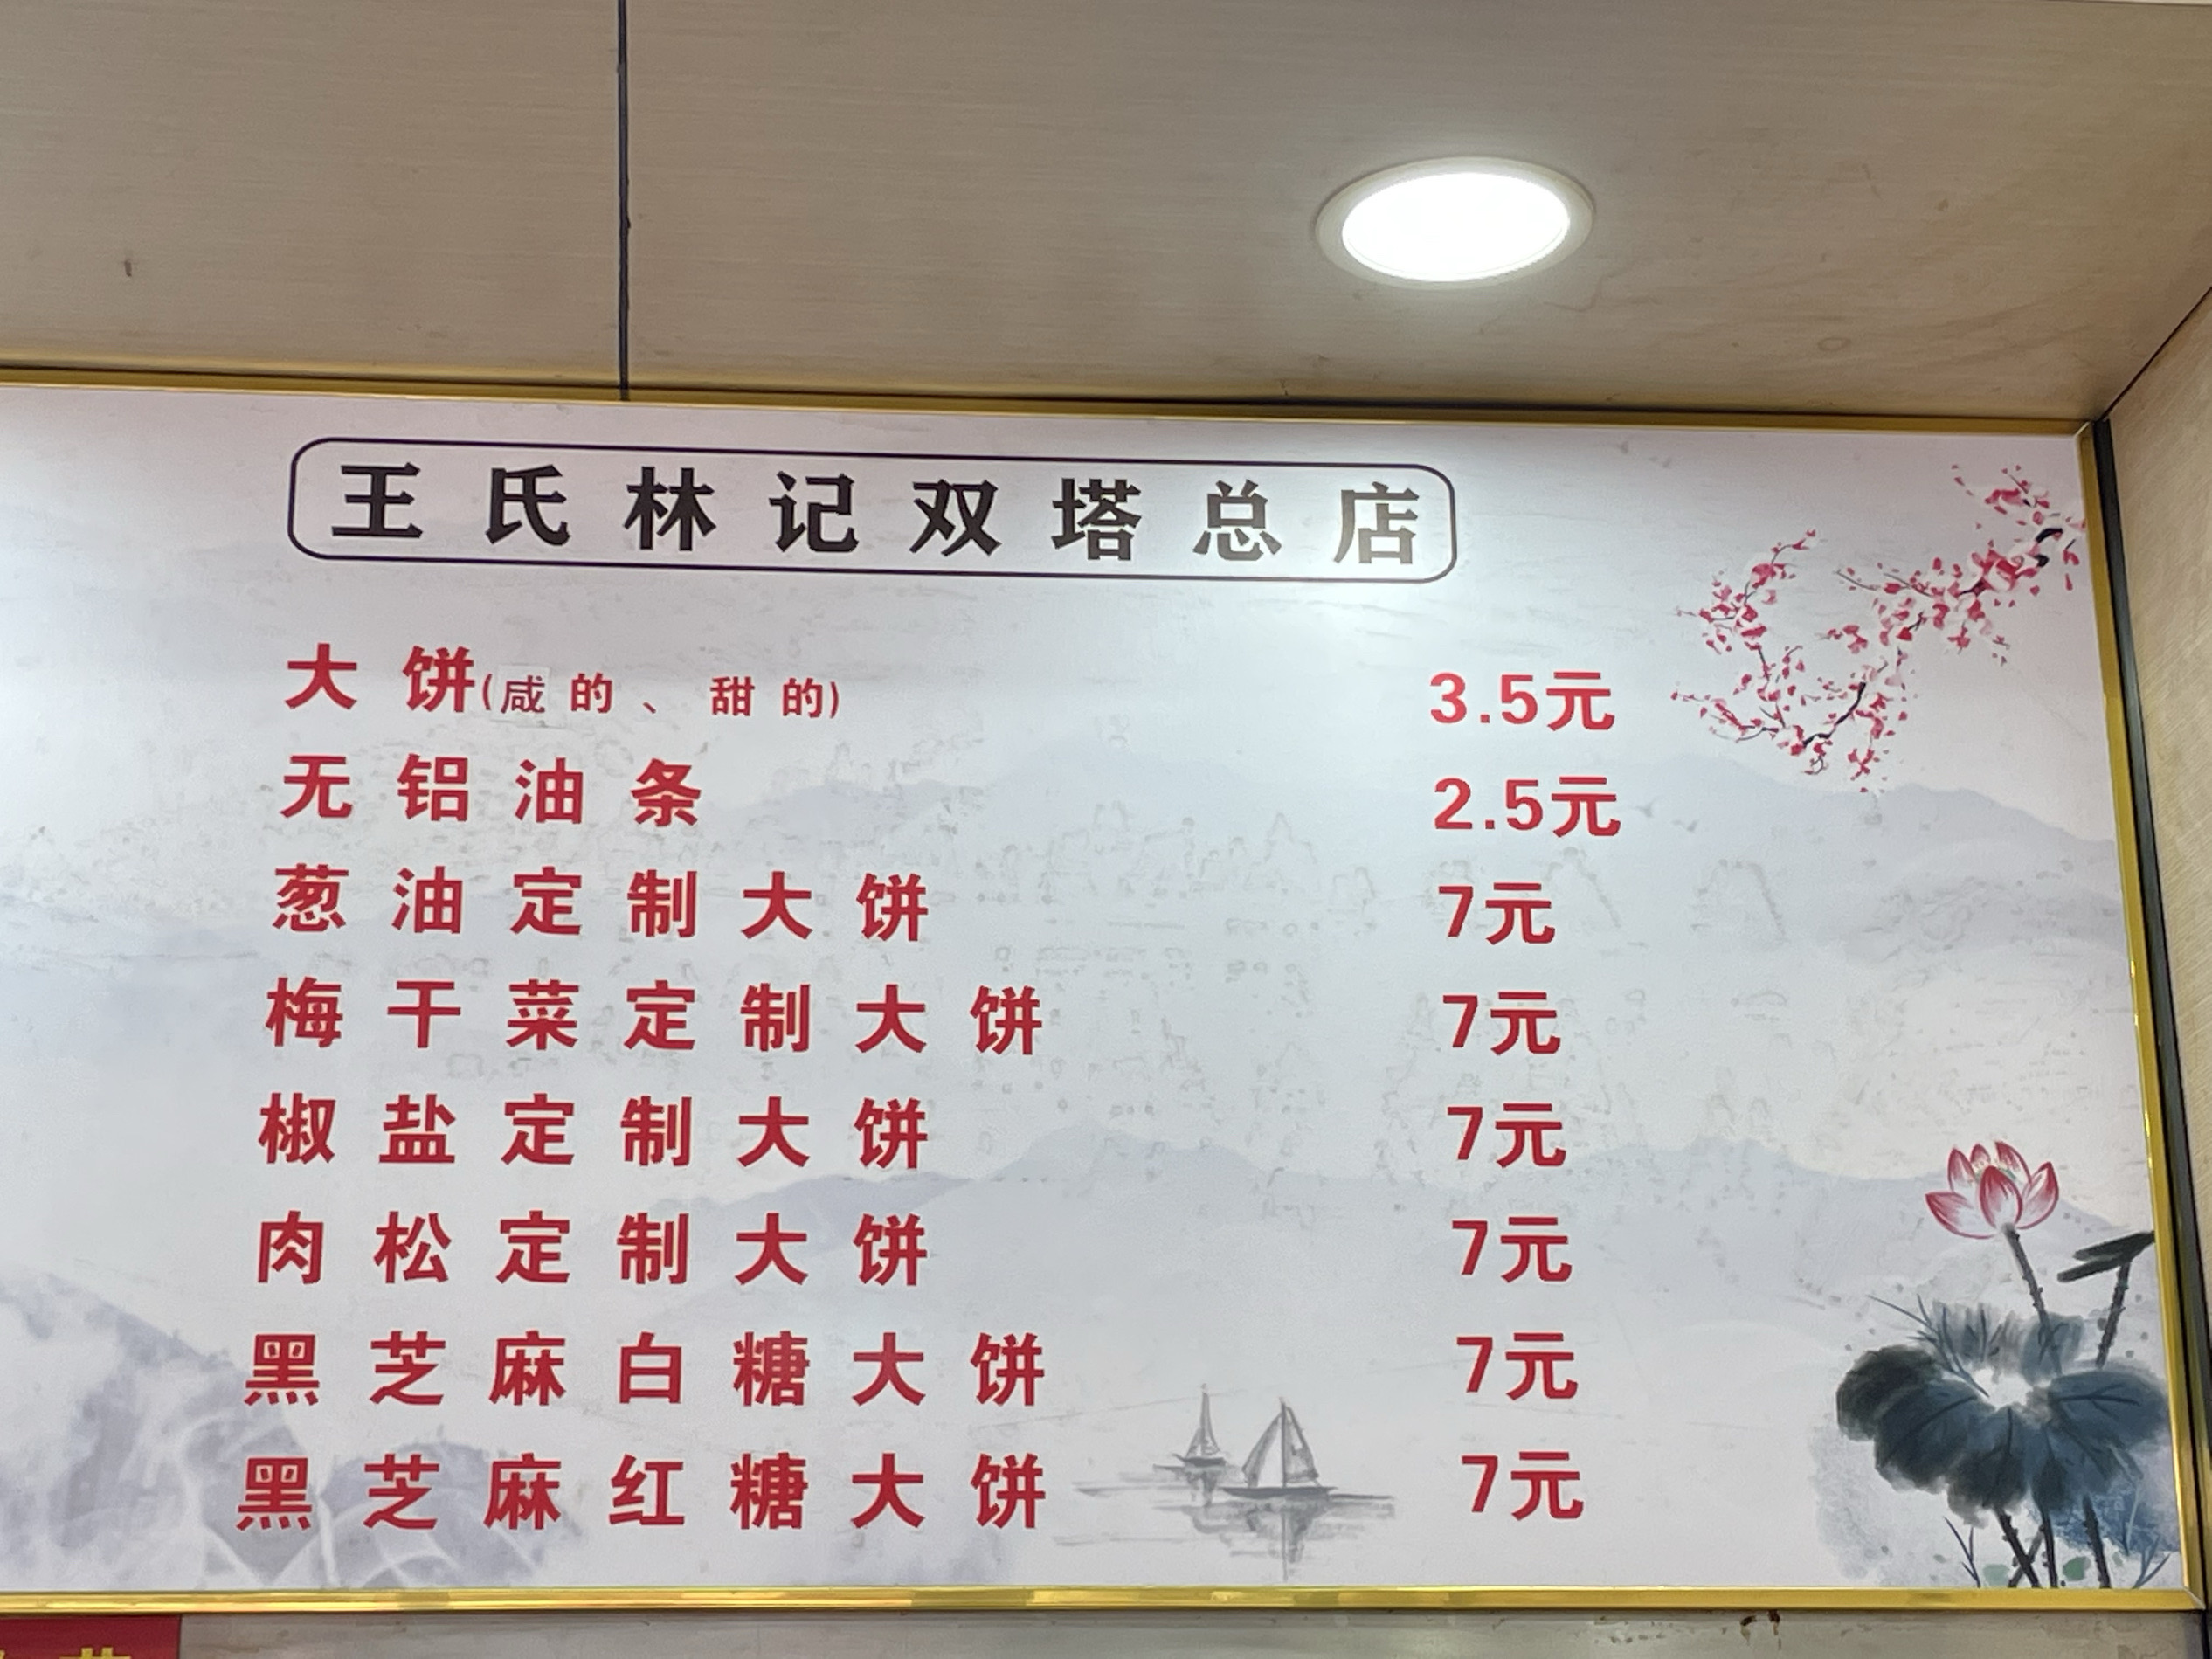 王氏林记双塔总店
大饼(咸的、甜的) 3.5元
无铝油条 2.5元
葱油定制大饼 7元
梅干菜定制大饼 7元
椒盐定制大饼 7元
肉松定制大饼 7元
黑芝麻白糖大饼 7元
黑芝麻红糖大饼 7元